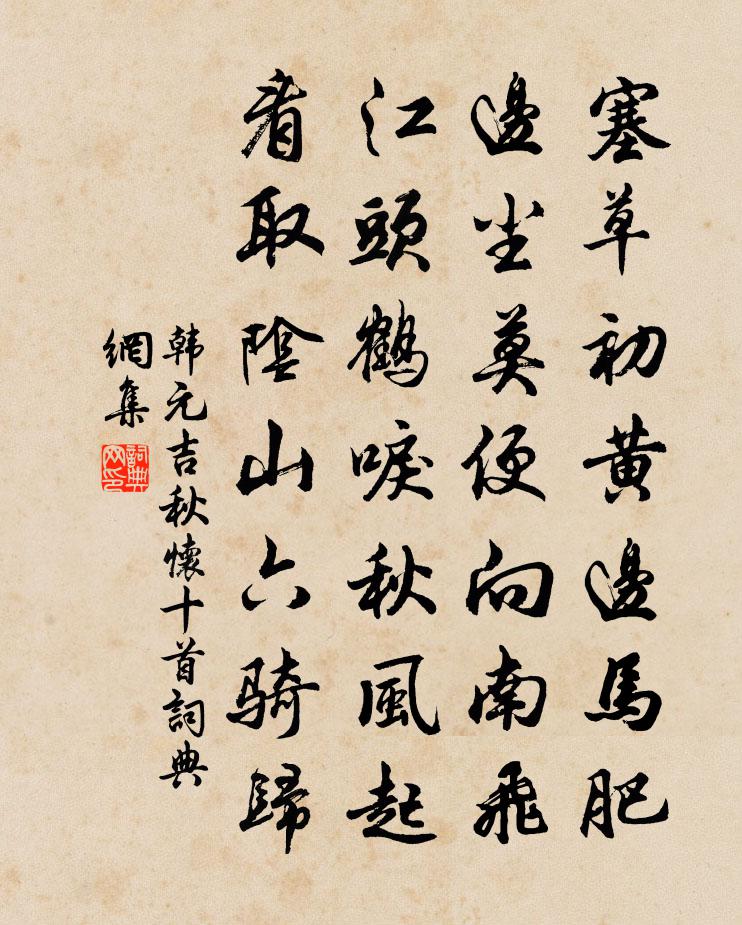 塞草初黄邊馬肥
邊塵莫便向南飛
江頭鶴唳秋風起
看取陰山六騎歸
韩元吉秋懷十首詞典
網集
詞典
网印